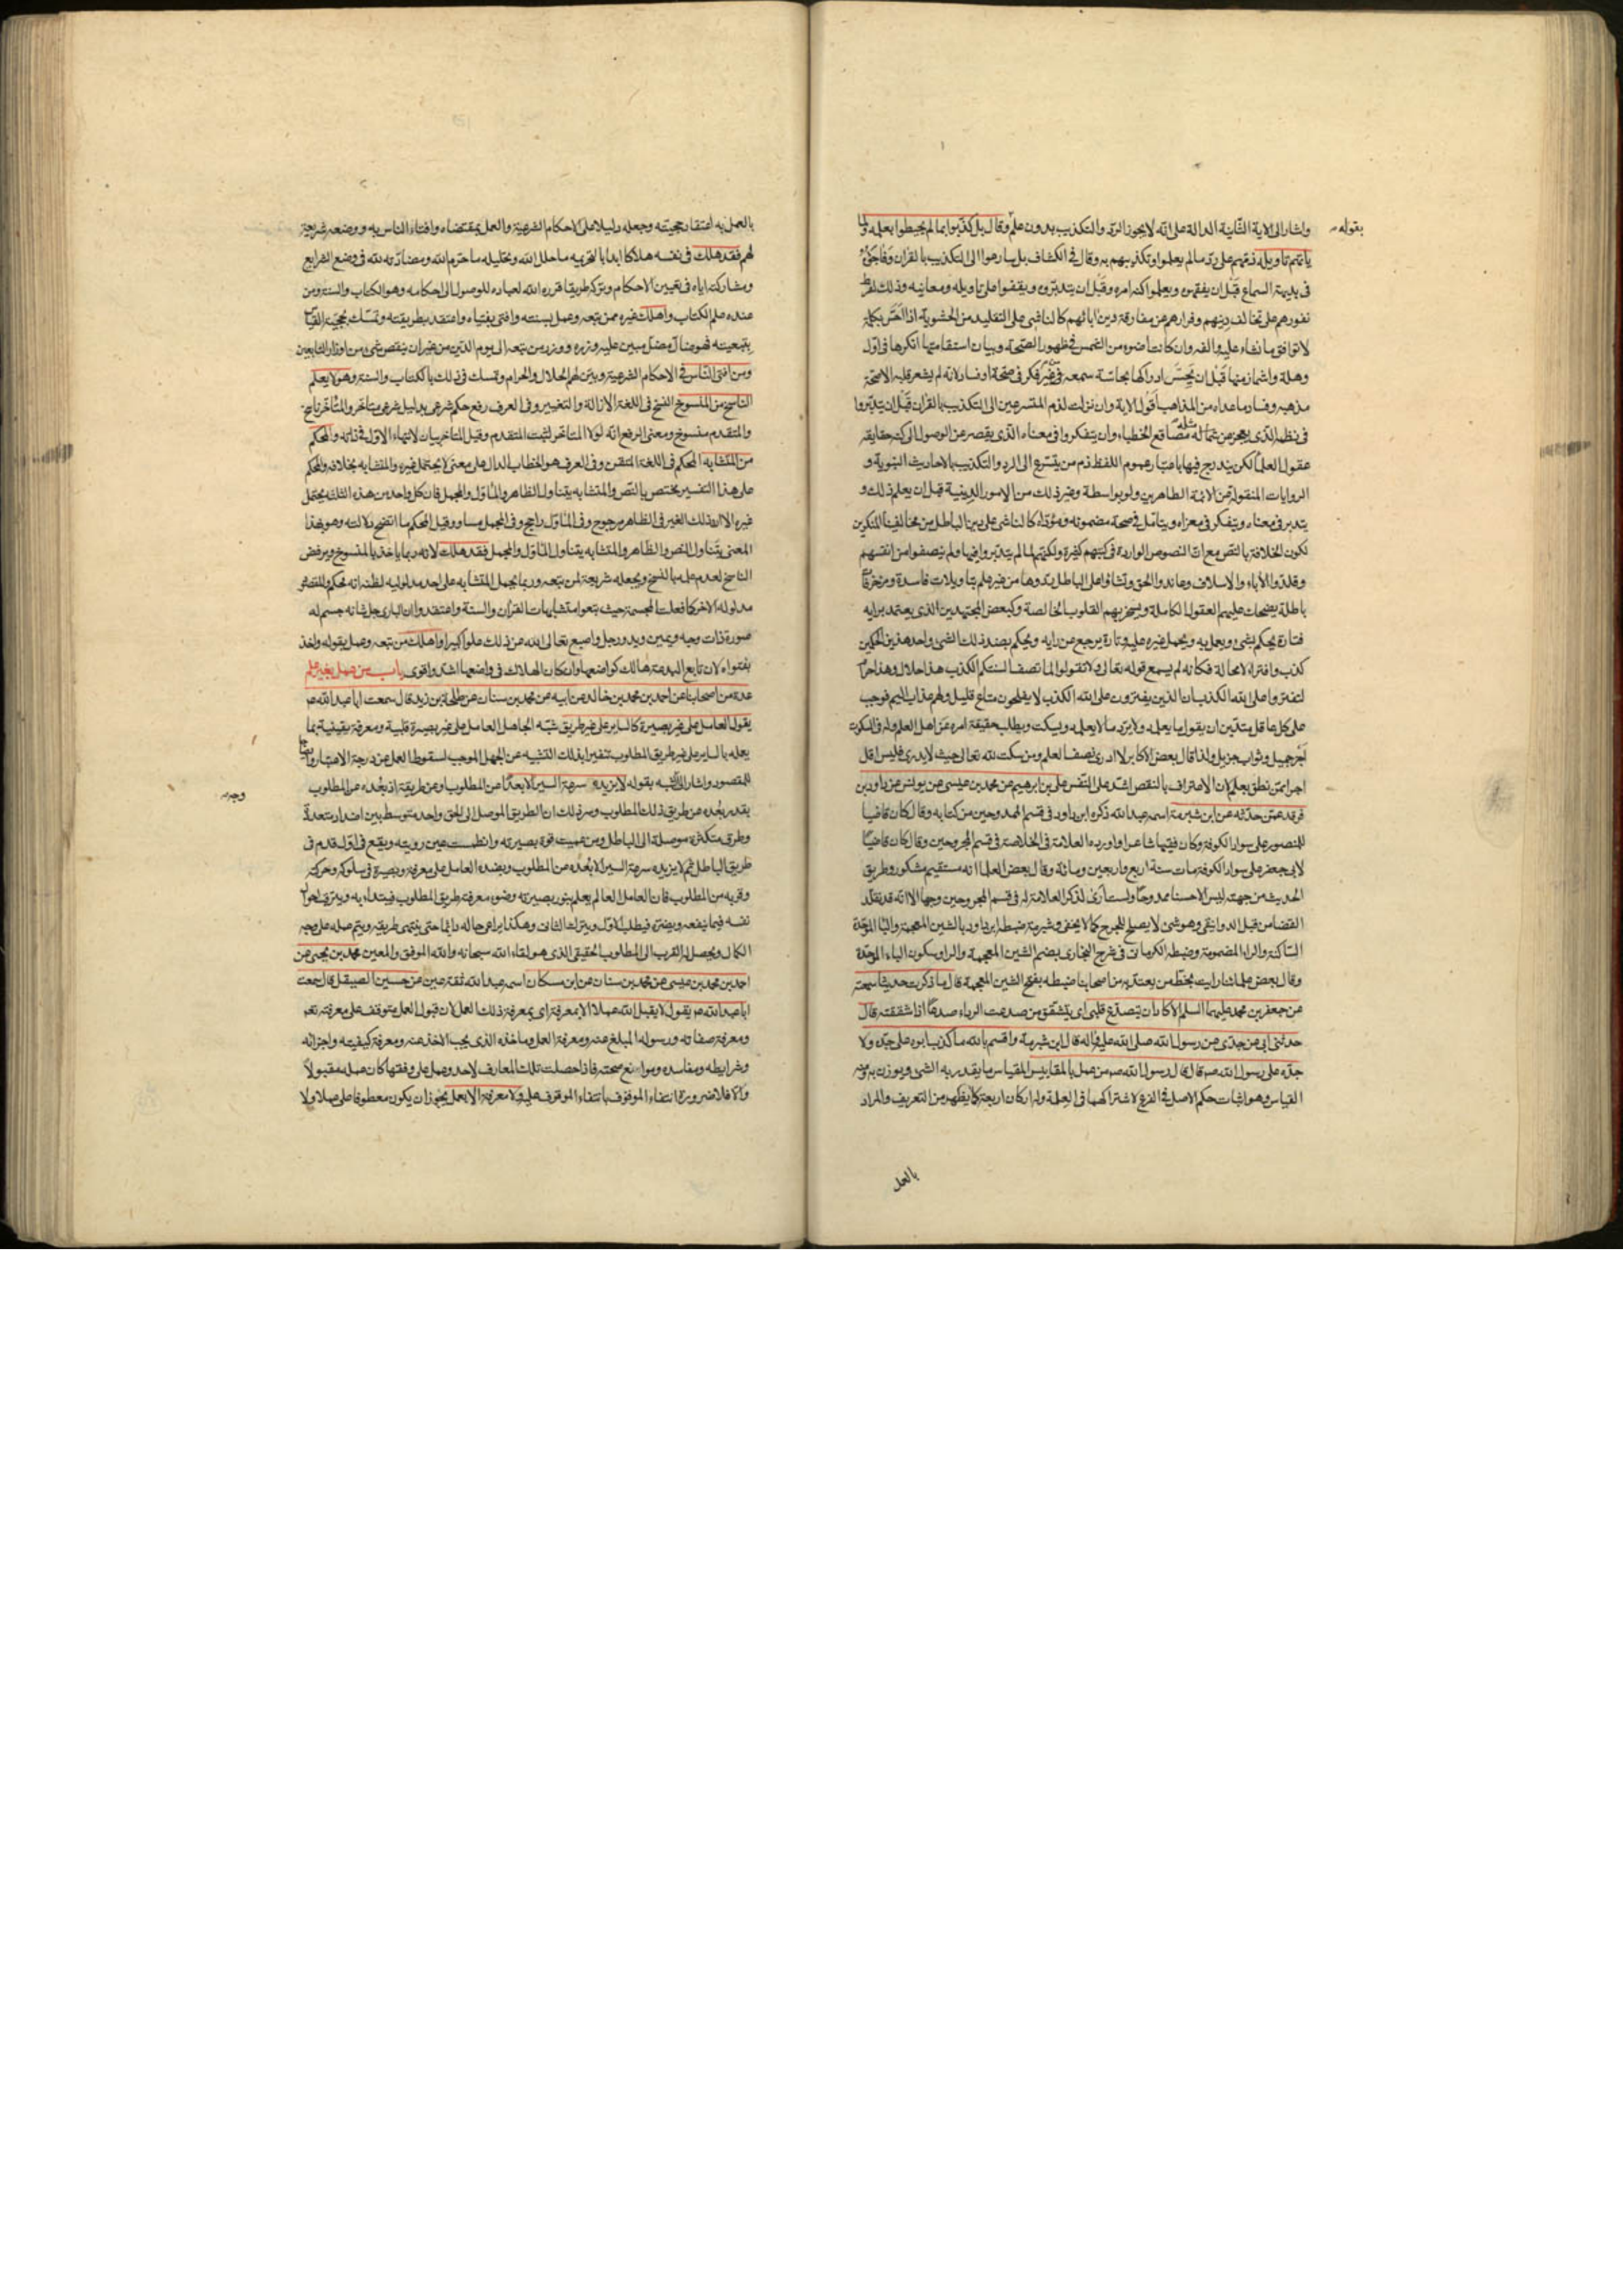 واشار الى الاية الثانية الدالة على انه لا يجوز الرد والتكذيب بدون علم وقال بل كذبوا بما لم يحيطوا بعلمه ولما
بقوله
ياتهم تاويله ذمهم على رد مالم يعلموا وتكذيبهم به وقال في الكشاف بل سارعوا الى التكذيب بالقران وفاجؤه
في بديهة السماع قبل ان يفقهوه ويعلموا كنه امره وقبل ان يتدبروه ويقفوا على تاويله ومعانيه وذلك لفرط
نفورهم على تخالف دينهم وفرارهم من مفارقة دين ابائهم كالناشي على التقليد من الحشوية اذا احس بكلمة
لا توافق ما نشاء عليه والفه وان كانت اضوء من الشمس في ظهور الصحة وبيان استقامتها انكرها في اول
وهلة واشمأز منها قبل ان يحس ادراكها بحاسة سمعه من غير فكر في صحة او فساد لانه لم يشعر قلبه الا صحة
مذهبه وفساد ما عداه من المذاهب اقول الاية وان نزلت لذم المتسرعين الى التكذيب بالقران قبل ان يتدبروا
في نظمه الذي يعجز عن مثاله مصاقع الخطباء وان يتفكروا في معناه الذي يقصر عن الوصول الى كنه حقايقه
عقول العلما لكن يندرج فيها باعتبار عموم اللفظ ذم من يتسرع الى الرد والتكذيب بالاحاديث النبوية و
الروايات المنقولة من الائمة الطاهرين ولو بواسطة وغير ذلك من الامور الدينية قبل ان يعلم ذلك و
يتدبر في معناه ويتفكر في مغزاه ويتامل في صحة مضمونه ومؤداه كالناشي على دين الباطل من مخالفينا المنكرين
لكون الخلافة بالنص مع ان النصوص الواردة في كتبهم كثيرة ولكنهم لما لم يتدبروا فيها ولم ينصفوا من انفسهم
وقلدوا الاباء والاسلاف وعاندوا الحق ونشاؤا على الباطل ردوها من غير علم بتاويلات فاسدة ومزخرفات
باطلة يضحك عليهم العقول الكاملة ويسخر بهم القلوب الخالصة وكبعض المجتهدين الذي يعتمد برايه
فتارة يحكم بشي ويعمل به ويحمل غيره عليه وتارة يرجع عن رايه ويحكم بضد ذلك الشي واحد هذين الحكمين
كذب وافتراء لا محالة فكانه لم يسمع قوله تعالى ولا تقولوا لما تصف السنتكم الكذب هذا حلال وهذا حرام
لتفتروا على الله الكذب ان الذين يفترون على الله الكذب لا يفلحون متاع قليل ولهم عذاب اليم فوجب
على كل عاقل متدين ان يقول ما يعلمه ولا يرد ما لا يعلمه ويسكت ويطلب حقيقة امره عن اهل العلم وله في السكوت
اجر جميل وثواب جزيل ولذا قال بعض الاكابر لا ادري نصف العلم ومن سكت لله تعالى حيث لا يدري فليس اقل
اجرا ممن نطق بعلم لان الاعتراف بالنقص اشد على النفس علي بن ابرهيم عن محمد بن عيسى عن يونس عن داود بن
فرقد عمن حدثه عن ابن شبرمة اسمه عبد الله ذكره ابن داود في قسم الممدوحين من كتابه وقال كان قاضيا
للمنصور على سواد الكوفة وكان فقيها شاعرا واورده العلامة في الخلاصة في قسم المجروحين وقال كان قاضيا
لابي جعفر على سواد الكوفة مات سنة اربع واربعين ومائة وقال بعض العلما انه مستقيم مشكور وطريق
الحديث من جهته ليس الا حسنا ممدوحا ولست ارى لذكر العلامة له في قسم المجروحين وجها الا انه قد تقلد
القضا من قبل الدوانيقي وهو شي لا يصلح للجرح كما لا يخفى وشبرمة ضبطه ابن داود بالشين المعجمة والبا الموحدة
الساكنة والراء المضمومة وضبطه الكرماني في شرح البخاري بضم الشين المعجمة والرا وسكون الباء الموحدة
وقال بعض علمائنا رايت بخط من يعتد به من اصحابنا ضبطه بفتح الشين المعجمة قال ما ذكرت حديثا سمعته
عن جعفر بن محمد عليهما السلم الا كاد ان يتصدع قلبي اي يتشقق من صدعت الرداء صدعا اذا شققته قال
حدثني ابي عن جدي عن رسول الله صلى الله عليه واله قال ابن شبرمة واقسم بالله ما كذب ابوه على جده ولا
جده على رسول الله صم قال قال رسول الله صم من عمل بالمقاييس المقياس ما يقدر به الشي ويوزن به ومنه
القياس وهو اثبات حكم الاصل في الفرع لاشتراكهما في العلة وله اركان اربعة كما يظهر من التعريف والمراد
بالعمل
بالعمل به اعتقاد حجيته وجعله دليلا على الاحكام الشرعية والعمل بمقتضاه وافتاء الناس به ووضعه شريعة
لهم فقد هلك في نفسه هلاكا ابدا بالتحريمه ما حلل الله وتحليله ما حرم الله ومضادته لله في وضع الشرايع
ومشاركته اياه في تعيين الاحكام وتركه طريقا قرره الله لعباده للوصول الى احكامه وهو الكتاب والسنة ومن
عنده علم الكتاب واهلك غيره ممن تبعه وعمل بسنته وافتى بفتياه واعتقد بطريقته وتمسك بحجية القياس
بتبعيته فهو ضال مضل مبين عليه وزره ووزر من تبعه الى يوم الدين من غير ان ينقص شي من اوزار التابعين
ومن افتى الناس في الاحكام الشرعية وبين لهم الحلال والحرام وتمسك في ذلك بالكتاب والسنة وهو لا يعلم
الناسخ من المنسوخ النسخ في اللغة الازالة والتغيير وفي العرف رفع حكم شرعي بدليل شرعي متاخر والمتاخر ناسخ
والمتقدم منسوخ ومعنى الرفع انه لولا المتاخر لثبت المتقدم وقيل المتاخر بيان لانتهاء الاول في ذاته والمحكم
من المتشابه المحكم في اللغة المتقن وفي العرف هو الخطاب الدال على معنى لا يحتمل غيره والمتشابه بخلافه والمحكم
على هذا التفسير يختص بالنص والمتشابه يتناول الظاهر والماول والمجمل فان كل واحد من هذه الثلثة يحتمل
غيره الا ان ذلك الغير في الظاهر مرجوح وفي الماول راجح وفي المجمل مساو وقيل المحكم ما اتضح دلالته وهو بهذا
المعنى يتناول النص والظاهر والمتشابه يتناول الماول والمجمل فقد هلك لانه ربما ياخذ بالمنسوخ ويرفض
الناسخ لعدم علمه بالنسخ ويجعله شريعة لمن تبعه وربما يحمل المتشابه على احد مدلوليه لظنه انه محكم والمقصود
مدلوله الاخر كما فعلت المجسمة حيث تبعوا متشابهات القران والسنة واعتقدوا ان الباري جل شانه جسم له
صورة ذات وجه ويمين ويد ورجل واصبع تعالى الله عن ذلك علوا كبيرا واهلك من تبعه وعمل بقوله واخذ
بفتواه لان تابع البدعة هالك كواضعها وان كان الهلاك في واضعها اشد واقوى باب من عمل بغير علم
عدة من اصحابنا عن احمد بن محمد بن خالد عن ابيه عن محمد بن سنان عن طلحة بن زيد قال سمعت ابا عبد الله عم
يقول العامل على غير بصيرة كالساير على غير طريق شبه الجاهل العامل على غير بصيرة قلبية ومعرفة يقينية بما
يعمله بالساير على غير طريق المطلوب تنفيرا بذلك التشبيه عن الجهل الموجب لسقوط العمل عن درجة الاعتبار
للمقصور واشار الى وجه الشبه بقوله لا يزيده سرعة السير الا بعدا عن المطلوب وعن طريقة اذ بعده عن المطلوب
وجه
بقدر بعده عن طريق ذلك المطلوب وسر ذلك ان الطريق الموصل الى الحق واحد متوسط بين اضداد متعددة
وطرق متكثرة موصلة الى الباطل ومن عميت قوة بصيرته وانطمست عين رويته ويقع في اول قدم في
طريق الباطل ثم لا يزيده سرعة السير الا بعده عن المطلوب وبضده العامل على معرفة وبصيرة في سلوكه وحركته
وقربه من المطلوب فان العامل العالم يعلم بنور بصيرته وضوء معرفته طريق المطلوب فيبتداء به ويترقى احوال
نفسه فيما ينفعه ويضره فيطلب الاول ويترك الثاني وهكذا يراعي حاله دائما حتى ينتهي طريقه ويتم عمله على وجه
الكمال ويحصل له القرب الى المطلوب الحقيقي الذي هو لقاء الله سبحانه والله الموفق والمعين محمد بن يحيى عن
احمد بن محمد بن عيسى عن محمد بن سنان عن ابن مسكان اسمه عبد الله ثقة عين عن حسين الصيقل قال سمعت
ابا عبد الله عم يقول لا يقبل الله عملا الا بمعرفة اي بمعرفة ذلك العمل لان قبول العمل متوقف على معرفته تعالى
ومعرفة صفاته ورسوله المبلغ عنه ومعرفة العمل وماخذه الذي يجب الاخذ عنه ومعرفة كيفيته واجزائه
وشرايطه ومفاسده وموانع صحته فاذا حصلت تلك المعارف لاحد وعمل على وفقها كان عمله مقبولا
والا فلا ضرورة انتفاء الموقوف بانتفاء الموقوف عليه ولا معرفة الا بعمل يحتمل ان يكون معطوفا على عملا ولا